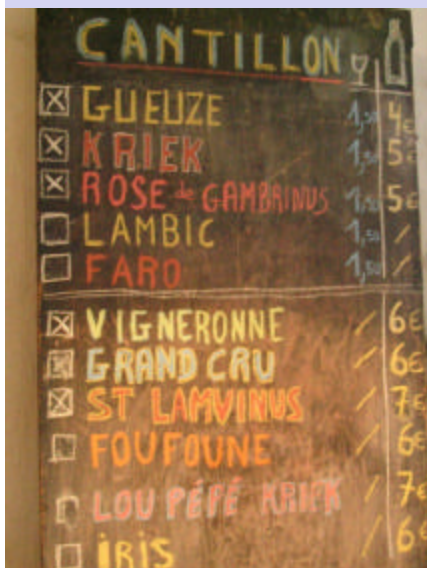 CANTILLON
GUEUZE 1,50 4€
KRIEK 1,50 5€
ROSE de GAMBRINUS 1,50 5€
LAMBIC 1,50 /
FARO 1,50 /
VIGNERONNE / 6€
GRAND CRU / 6€
ST LAMVINUS / 7€
FOUFOUNE / 6€
LOU PÉPÉ KRIEK / 7€
IRIS / 6€